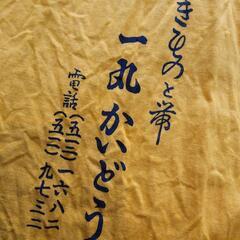 きものと帯
一丸かいどう
電話(五二)一六八二
(五二)九七三二